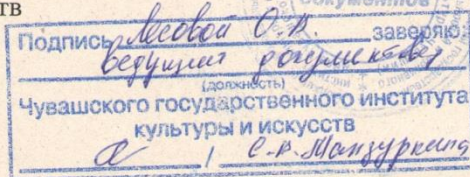 тв
Подпись Лесовой О.В. заверяю
ведущий документовед
(должность)
Чувашского государственного института
культуры и искусств
/ С.В. Манзуркина